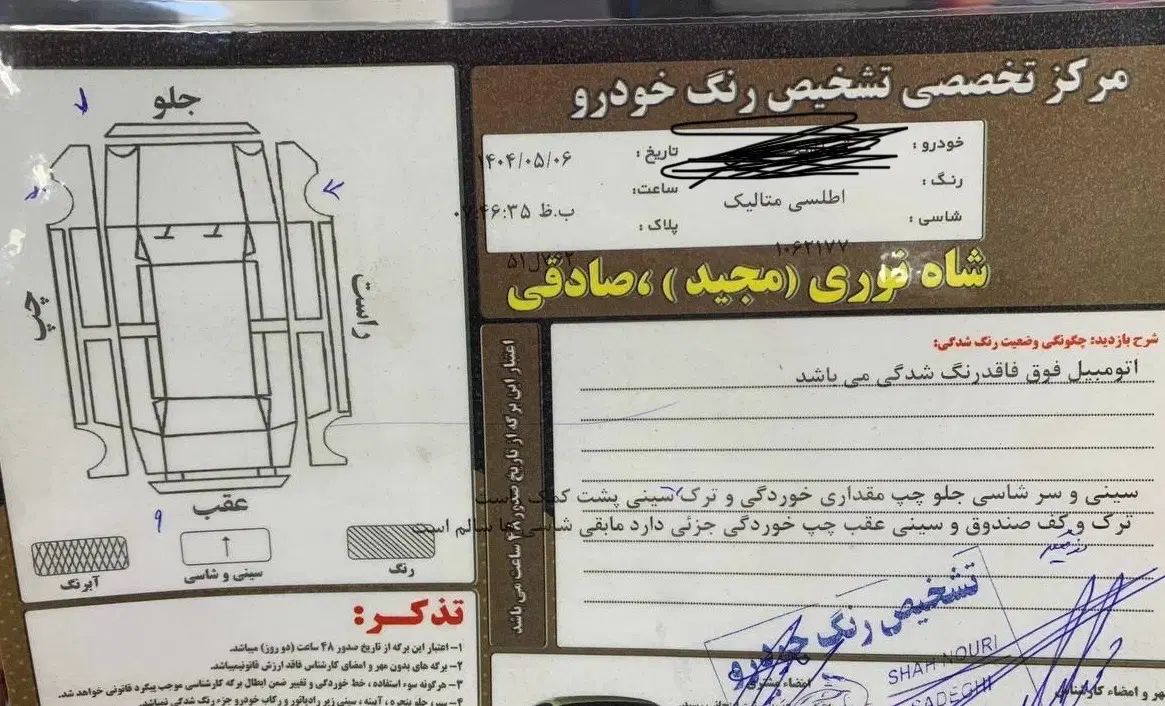 مرکز تخصصی تشخیص رنگ خودرو
خودرو :
تاریخ : ۱۴۰۴/۰۵/۰۶
رنگ : اطلسی متالیک
ساعت: ۰۷:۴۶:۳۵ ب.ظ
شاسی : ۱۰۶۲۱۷۷
پلاک :
شاه نوری (مجید) ،صادقی
جلو
چپ
راست
عقب
رنگ
سینی و شاسی
آبرنگ
اعتبار این برگه از تاریخ صدور ۴۸ ساعت می باشد
شرح بازدید: چگونگی وضعیت رنگ شدگی:
اتومبیل فوق فاقدرنگ شدگی می باشد
سینی و سر شاسی جلو چپ مقداری خوردگی و ترک سینی پشت کمک راست
ترک و کف صندوق و سینی عقب چپ خوردگی جزئی دارد مابقی شاسی ها سالم است
تشخیص رنگ خودرو
SHAH NOURI
SADEGHI
امضاء مشتری
مهر و امضاء کارشناس
تذکر:
۱- اعتبار این برگه از تاریخ صدور ۴۸ ساعت (دو روز) میباشد.
۲- برگه های بدون مهر و امضای کارشناس فاقد ارزش قانونیمیباشد.
۳- هرگونه سوء استفاده ، خط خوردگی و تغییر ضمن ابطال برگه کارشناسی موجب پیگرد قانونی خواهد شد.
۴- سپر، جلو پنجره ، آیینه ، سینی زیر رادیاتور و رکاب خودرو جزء رنگ شدگی نمیباشد.